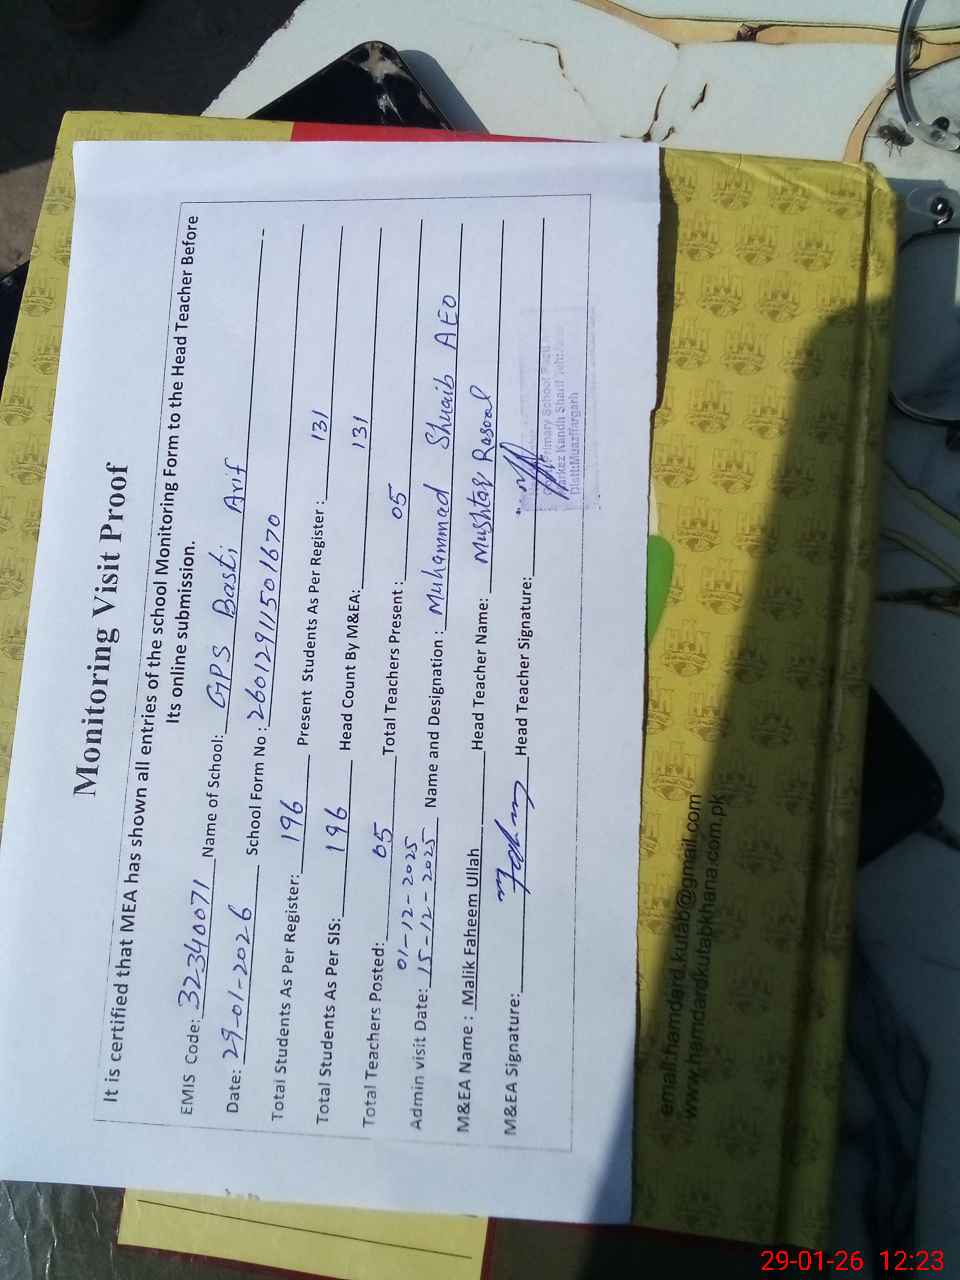 Monitoring Visit Proof
It is certified that MEA has shown all entries of the school Monitoring Form to the Head Teacher Before
Its online submission.
EMIS Code: 32340071 Name of School: GPS Basti Arif
Date: 29-01-2026 School Form No : 2601291150 1670
Total Students As Per Register: 196 Present Students As Per Register : 131
Total Students As Per SIS: 196 Head Count By M&EA: 131
Total Teachers Posted: 05 Total Teachers Present : 05
01-12-2025
Admin visit Date: 15-12-2025 Name and Designation : Muhammad Shuaib AEO
M&EA Name : Malik Faheem Ullah Head Teacher Name: Mushtaq Rasool
M&EA Signature: Head Teacher Signature:
Primary School
Markaz Kundh Sharif
Distt:Muzaffargarh
email:hamdard.kutab@gmail.com
www.hamdardkutabkhana.com.pk
29-01-26 12:23